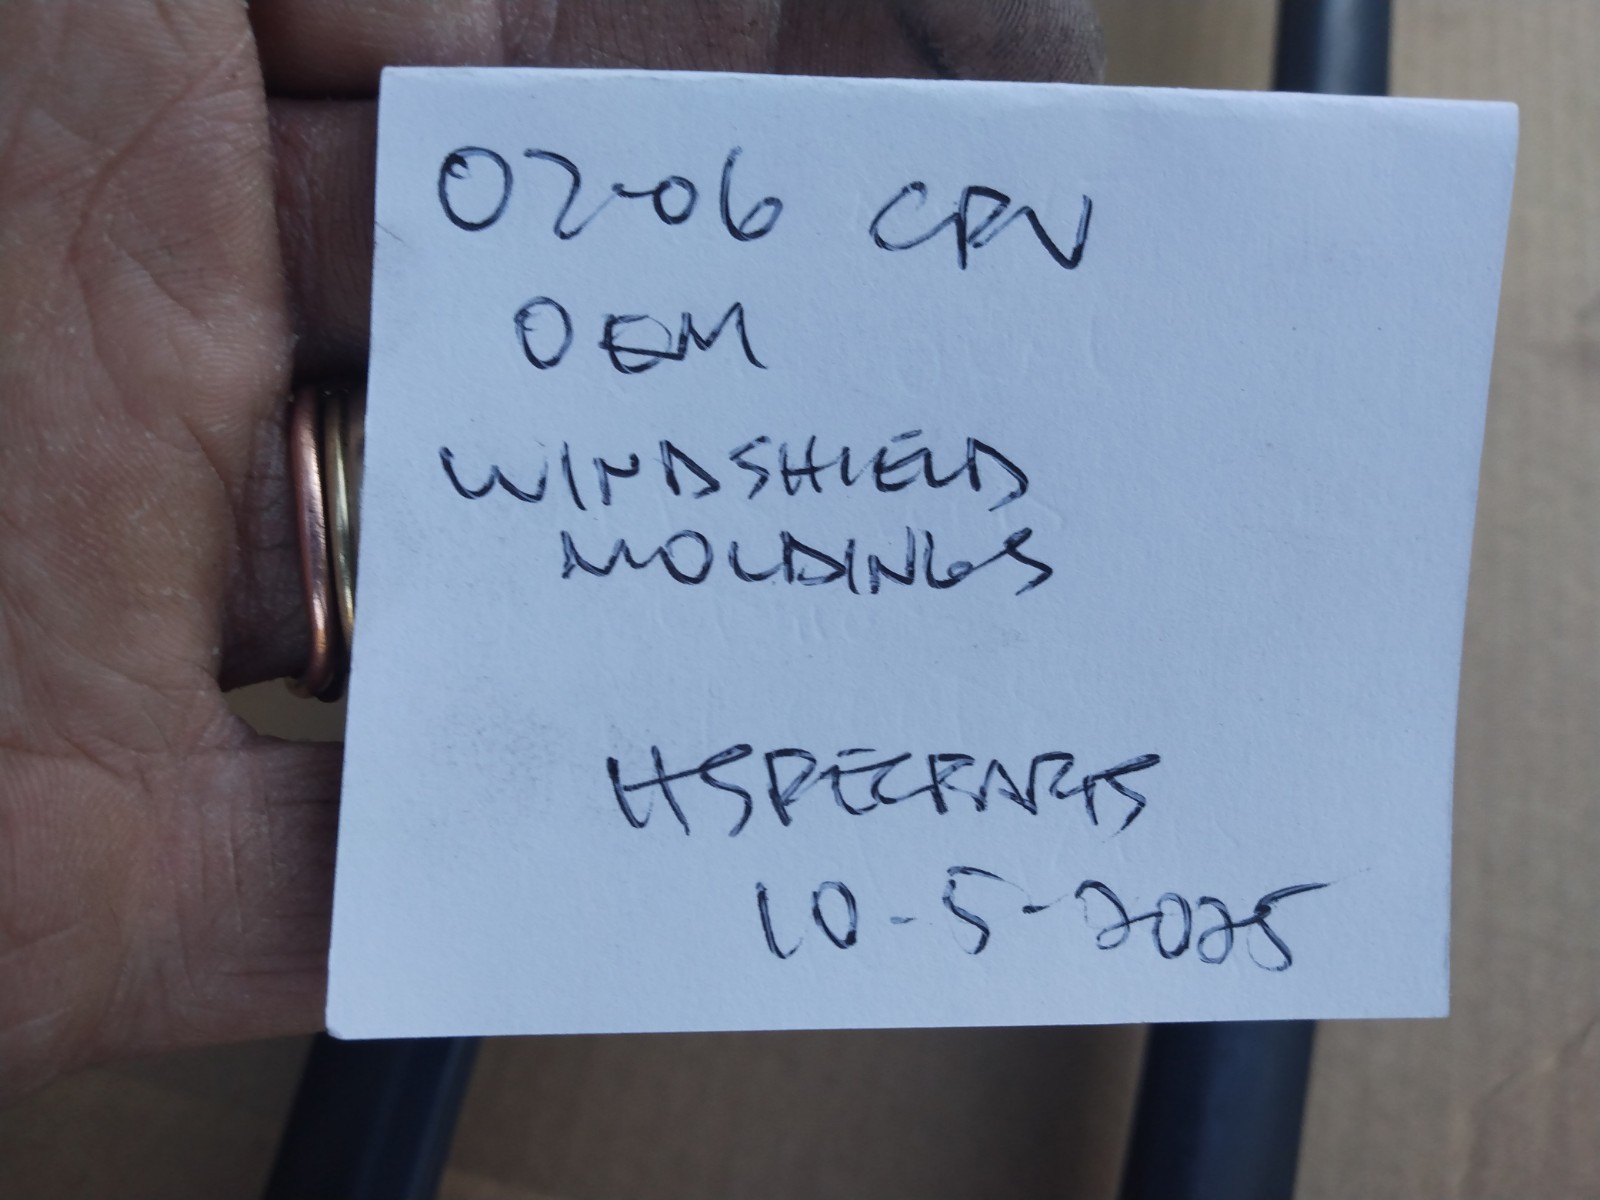 02-06 CRV
OEM
WINDSHIELD
MOLDINGS
HSPECPARTS
10-5-2025